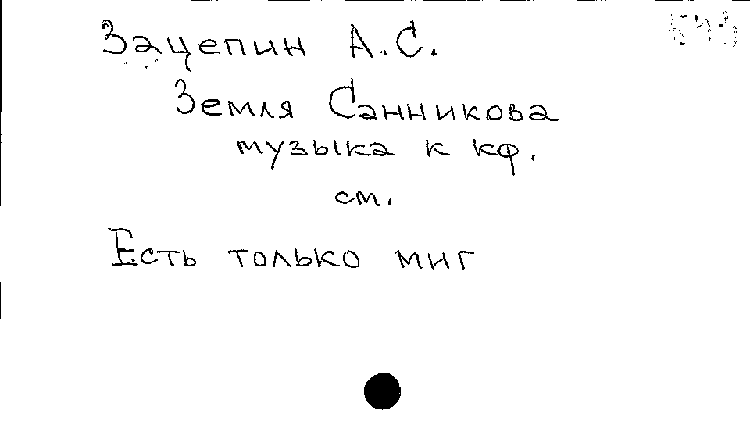 Зацепин А.С.
Земля Санникова
музыка к кф.
см.
Есть только миг